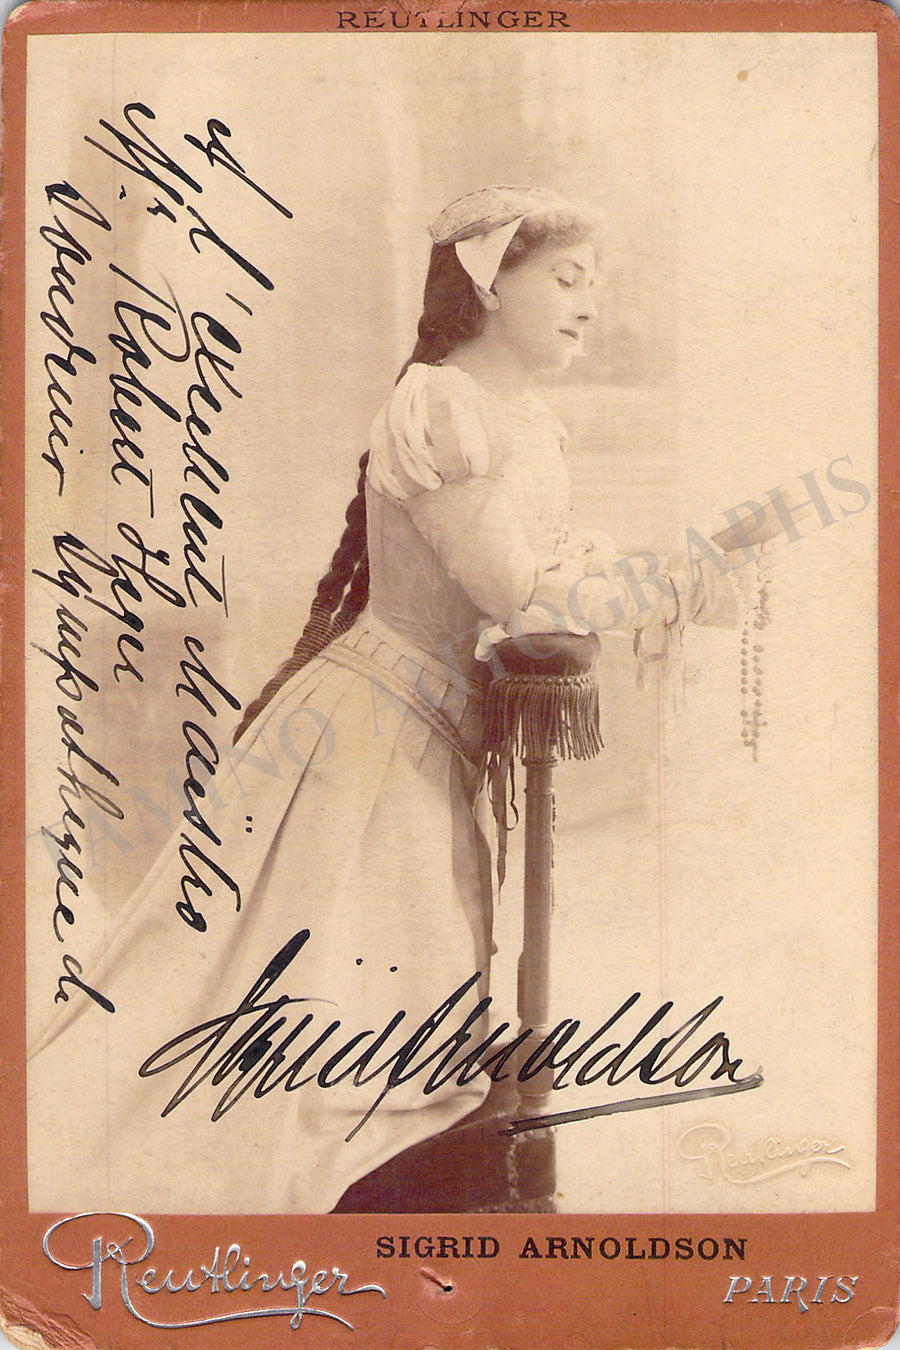 REUTLINGER
A l'excellent Maëstro
Mr. Robert Hege
Souvenir sympathique de
Sigrid Arnoldson
Reutlinger
TAMINO AUTOGRAPHS
Reutlinger
SIGRID ARNOLDSON
PARIS